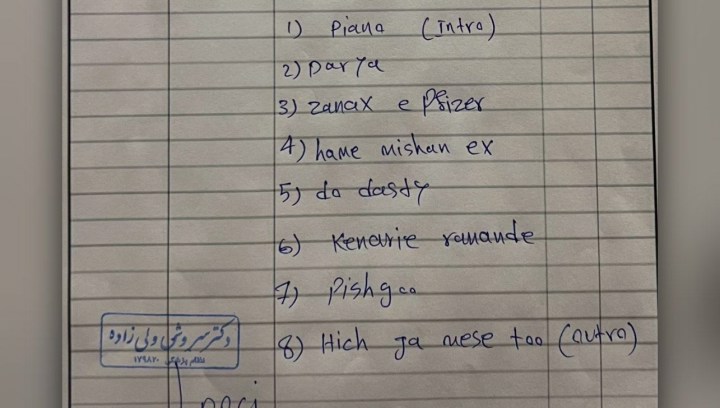 1) Piano (Intro)
2) Darya
3) Zanax e Pfizer
4) hame mishan ex
5) do dasty
6) Kenarie ranande
7) Pishgoo
8) Hich ja mese too (outro)
دکتر سروش ولی زاده